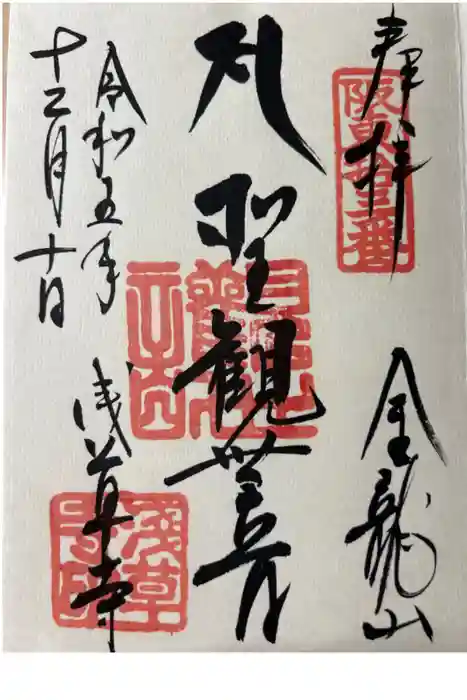 奉拝
阪東拾三番
金龍山
聖観世音
令和五年
十二月十日
浅草寺
浅草寺印